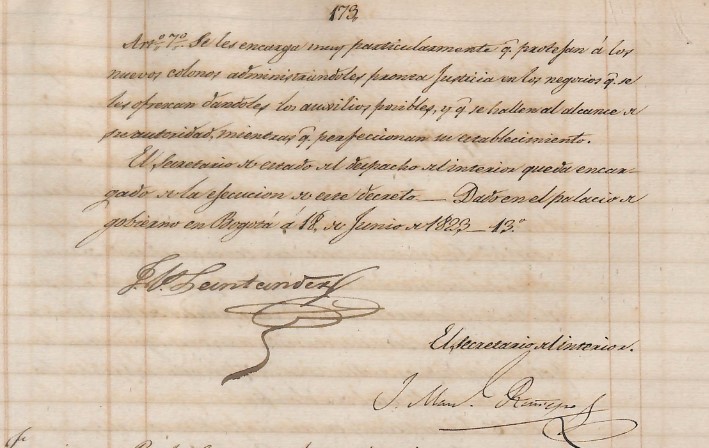 173
Arto. 7o. Se les encarga muy particularmente q. protejan á los
nuevos colonos administrandoles pronta Justicia en los negocios q. se
les ofrezcan dandoles los auxilios posibles, y q. se hallen al alcance de
su autoridad, mientras q. perfeccionan su establecimiento.
El Secretario de estado del despacho del interior queda encar-
gado de la ejecucion de este decreto — Dado en el palacio de
gobierno en Bogotá á 18 de Junio de 1823 — 13o.
F. P. Santander
El secretario del interior.
J. Manl. Restrepo